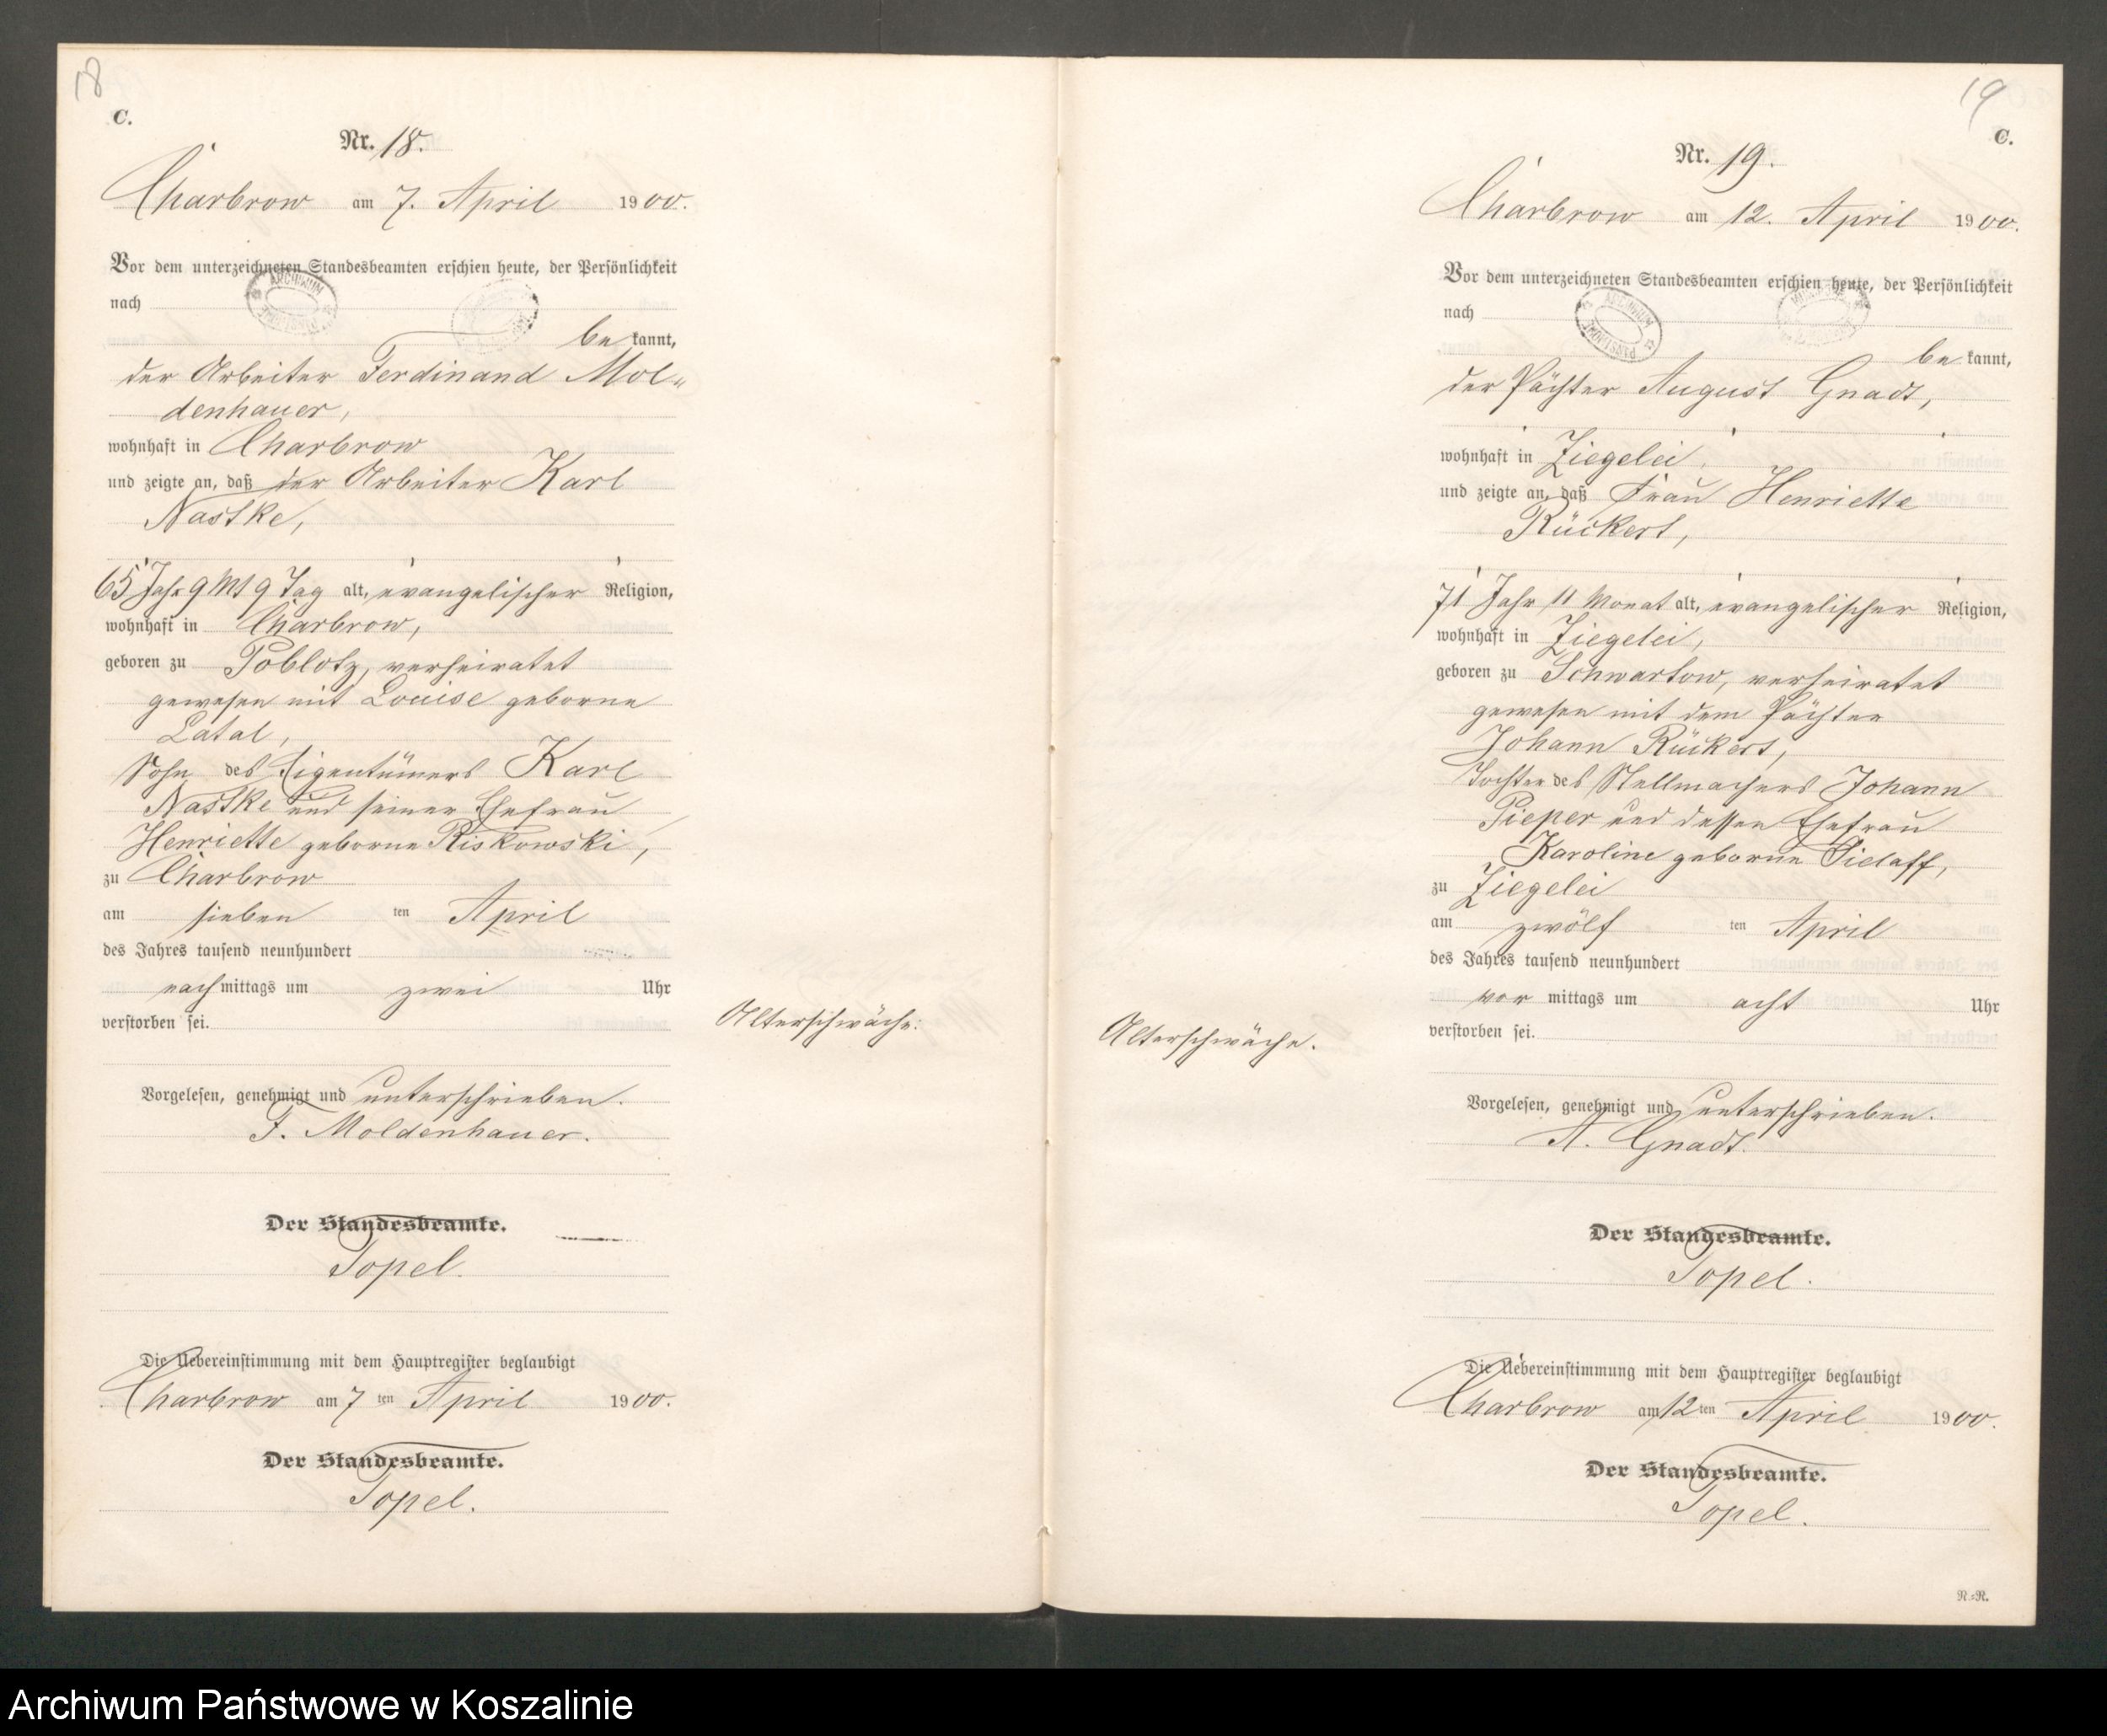 18
C.
Nr. 18.
Charbrow am 7. April 1900.
Vor dem unterzeichneten Standesbeamten erschien heute, der Persönlichkeit
nach
be kannt,
der Arbeiter Ferdinand Mol-
denhauer,
wohnhaft in Charbrow
und zeigte an, daß der Arbeiter Karl
Nastke,
65 Jahr 9 Mt 9 Tag alt, evangelischer Religion,
wohnhaft in Charbrow,
geboren zu Poblotz, verheiratet
gewesen mit Louise geborne
Latal,
Sohn des Eigentümers Karl
Nastke und seiner Ehefrau
Henriette geborne Riskowski,
zu Charbrow
am sieben ten April
des Jahres tausend neunhundert
nach mittags um zwei Uhr
verstorben sei.
Altersschwäche.
Vorgelesen, genehmigt und unterschrieben.
F. Moldenhauer.
Der Standesbeamte.
Topel.
Die Uebereinstimmung mit dem Hauptregister beglaubigt
Charbrow am 7 ten April 1900.
Der Standesbeamte.
Topel.
19
C.
Nr. 19.
Charbrow am 12. April 1900.
Vor dem unterzeichneten Standesbeamten erschien heute, der Persönlichkeit
nach
be kannt,
der Pächter August Gnadt,
wohnhaft in Ziegelei,
und zeigte an, daß Frau Henriette
Rückert,
71 Jahr 11 Monat alt, evangelischer Religion,
wohnhaft in Ziegelei,
geboren zu Schwartow, verheiratet
gewesen mit dem Pächter
Johann Rückert,
Tochter des Stellmachers Johann
Pieper und dessen Ehefrau
Karoline geborne Sielaff,
zu Ziegelei
am zwölf ten April
des Jahres tausend neunhundert
vor mittags um acht Uhr
verstorben sei.
Alterschwäche.
Vorgelesen, genehmigt und unterschrieben.
A. Gnadt.
Der Standesbeamte.
Topel.
Die Uebereinstimmung mit dem Hauptregister beglaubigt
Charbrow am 12 ten April 1900.
Der Standesbeamte.
Topel.
R.=R.
Archiwum Państwowe w Koszalinie